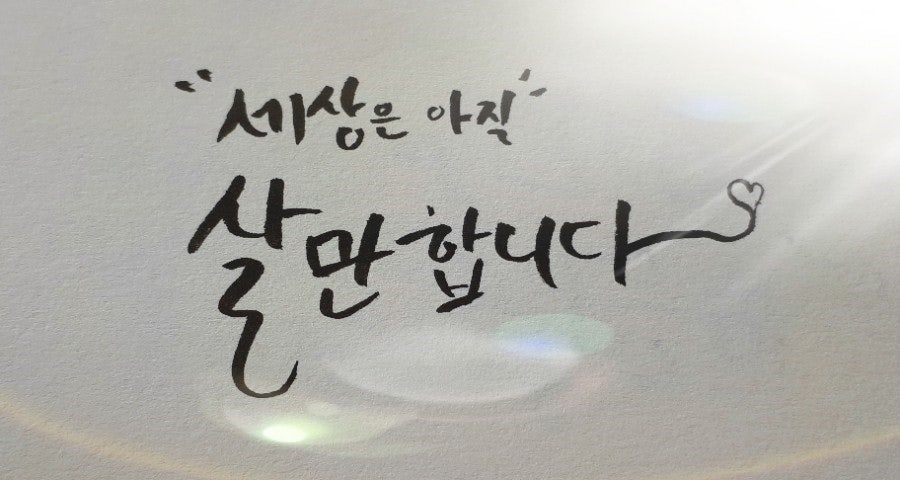 "세상은 아직"
살만합니다